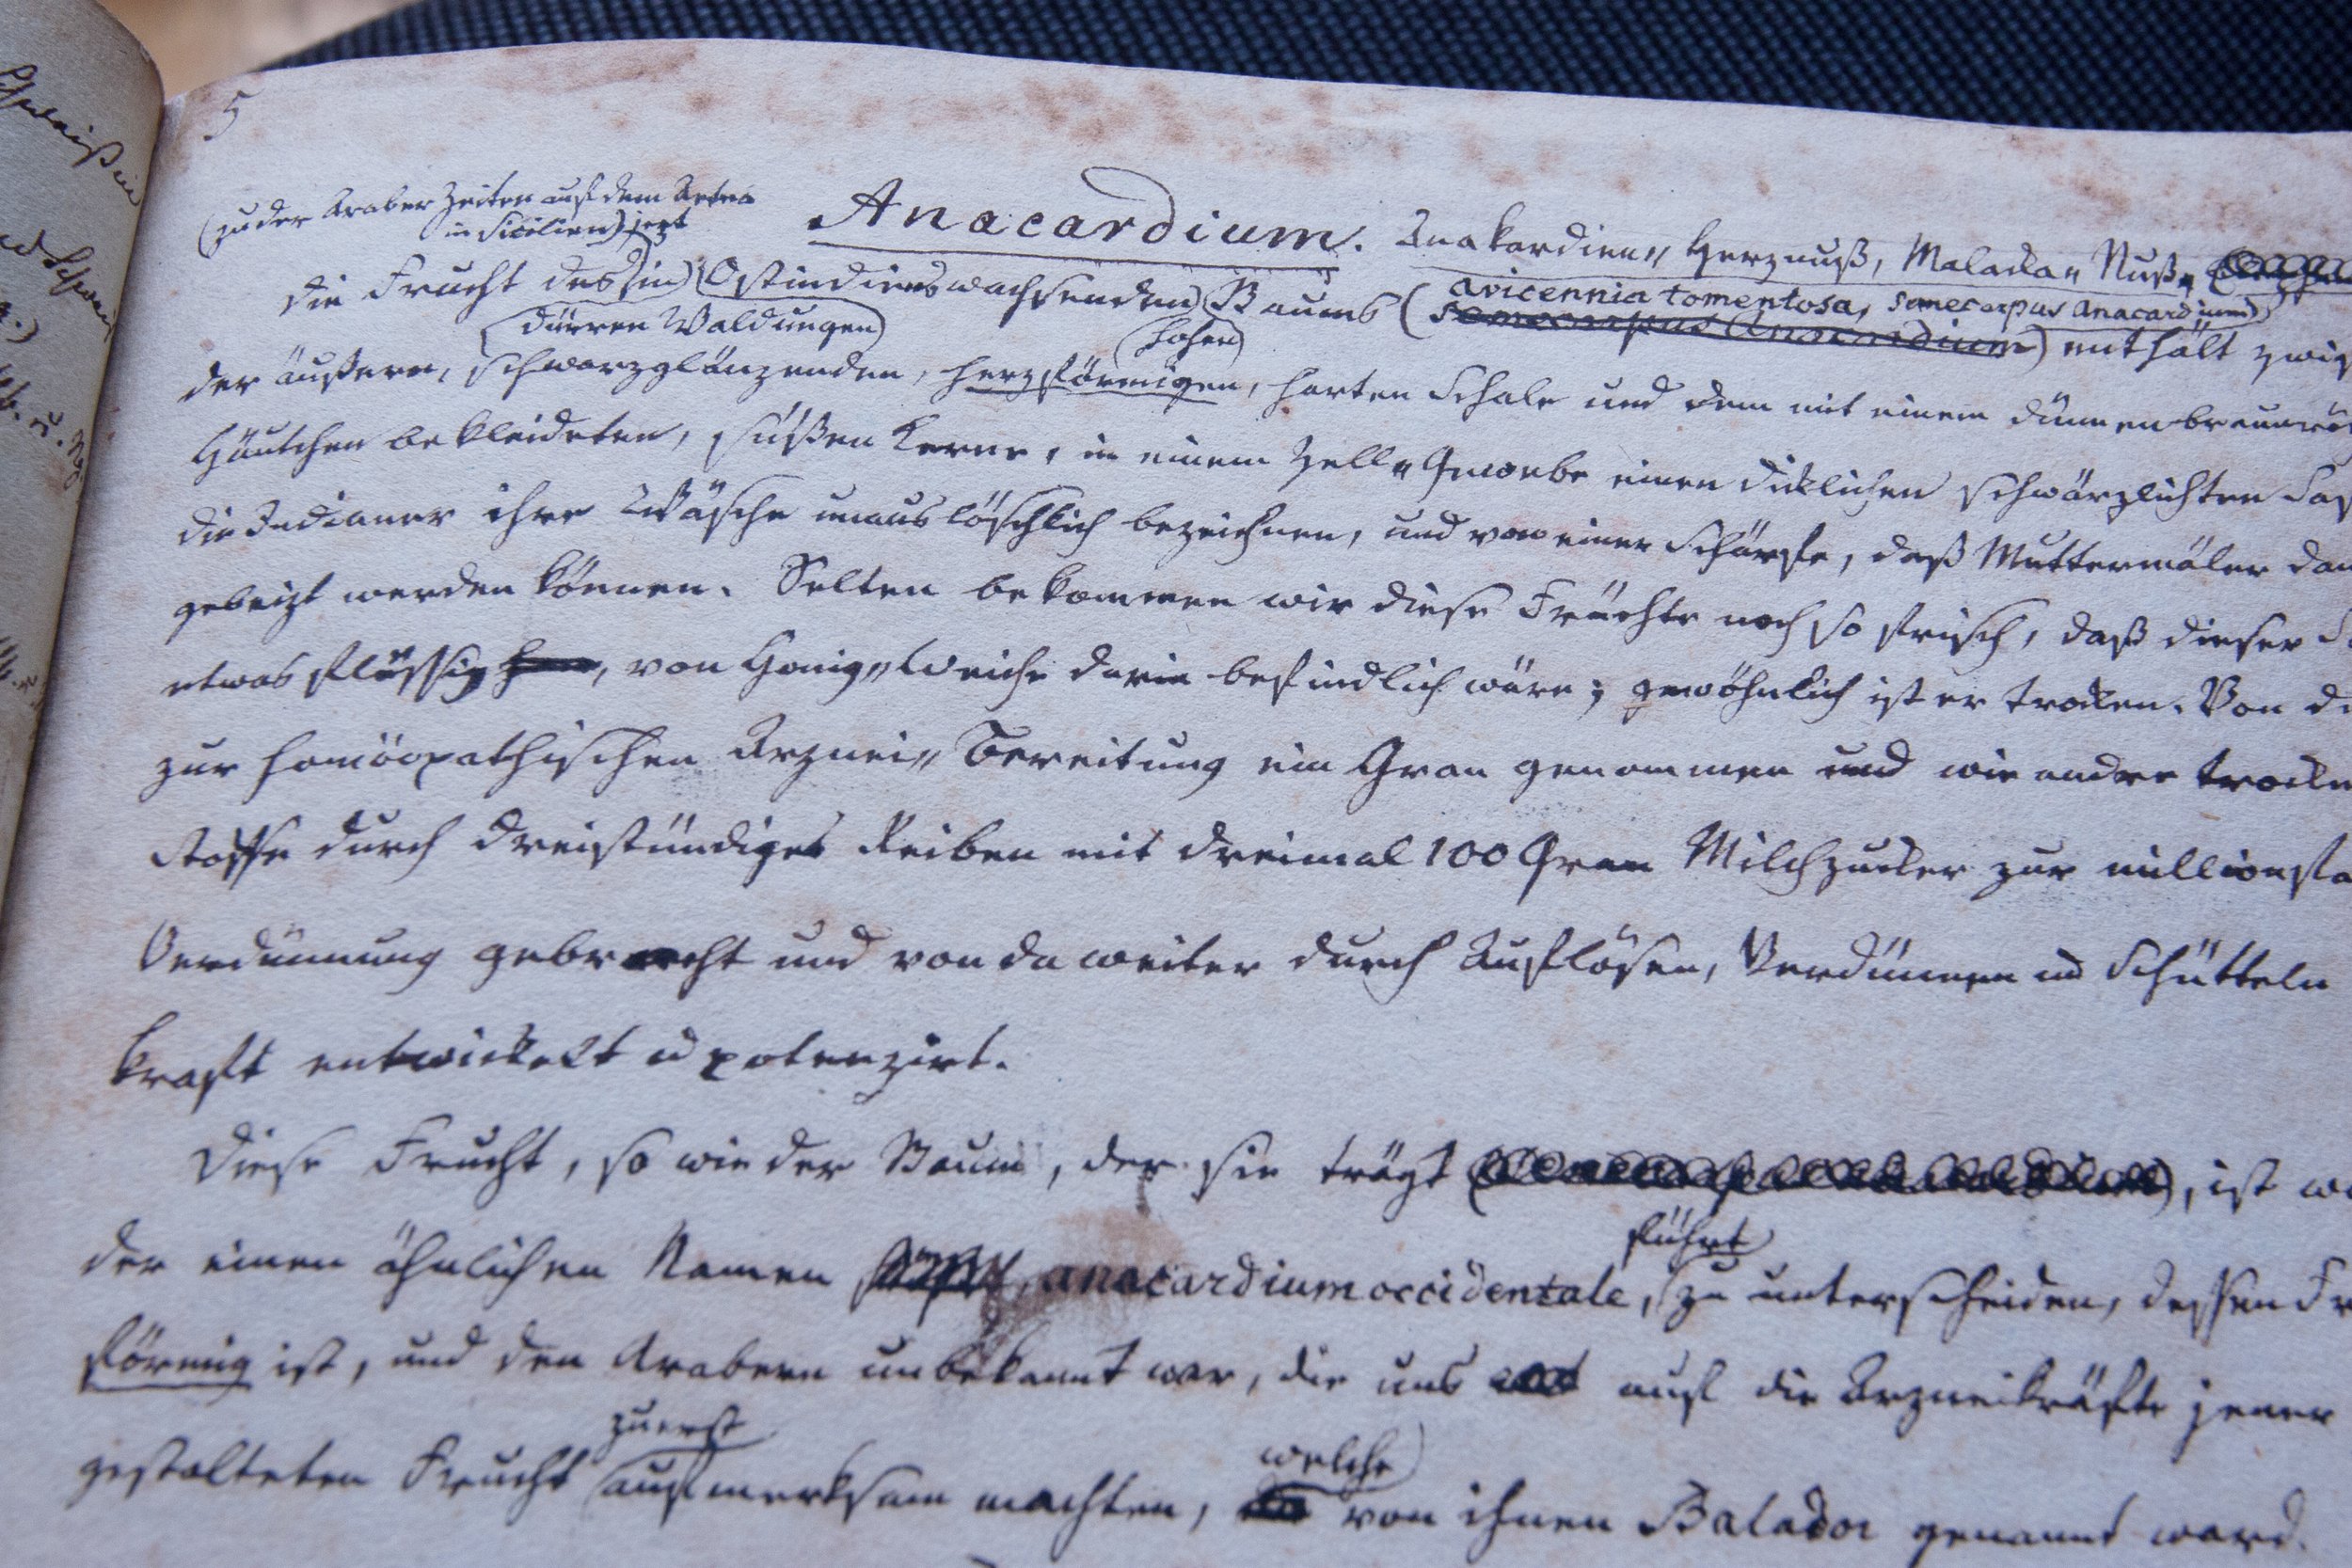 5
(zu der Araber Zeiten auf dem Aetna
in Sicilien) jezt
Anacardium. Anakardien, Herznuß, Malacka-Nuß,
die Frucht des (in) Ostindiens wachsenden Baums (avicennia tomentosa, semecarpus anacardium)
dürren Waldungen hohen semecarpus Anacardium) enthält zwis
der äußern, schwarzglänzenden, herzförmigen, harten Schale und dem mit einem dünnen braunrö
Häutchen bekleideten, süßen Kerne, in einem Zell-Gewebe einen dicklichen schwärzlichten Saf
die Indianer ihre Wäsche unauslöschlich bezeichnen, und von einer Schärfe, daß Muttermäler dam
gebeizt werden können. Selten bekommen wir diese Früchte noch so frisch, daß dieser S
etwas flüssig, von Honig-Weiche darin befindlich wäre; gewöhnlich ist er trocken. Von di
zur homöopathischen Arznei-Bereitung ein Gran genommen und wie andre trocken
Stoffe durch dreistündiges Reiben mit dreimal 100 Gran Milchzucker zur millionfa
Verdünnung gebracht und von da weiter durch Auflösen, Verdünnen u Schütteln
kraft entwickelt u potenzirt.
Diese Frucht, so wie der Baum, der sie trägt, ist w
der einen ähnlichen Namen anacardium occidentale, führt zu unterscheiden, dessen Fr
förmig ist, und den Arabern unbekannt war, die uns auf die Arzneikräfte jener
gestalteten Frucht zuerst aufmerksam machten, welche von ihnen Balador genannt ward.